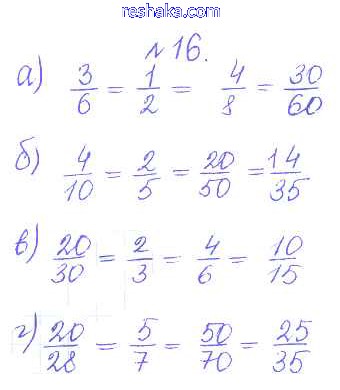 reshaka.com
№16.
а) 3/6 = 1/2 = 4/8 = 30/60
б) 4/10 = 2/5 = 20/50 = 14/35
в) 20/30 = 2/3 = 4/6 = 10/15
г) 20/28 = 5/7 = 50/70 = 25/35